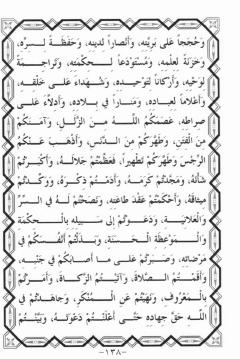 وَحُجَجاً عَلَى بَرِيَّتِهِ، وَأَنْصَاراً لِدِينِهِ، وَحَفَظَةً لِسِرِّهِ،
وَخَزَنَةً لِعِلْمِهِ، وَمُسْتَوْدَعاً لِحِكْمَتِهِ، وَتَرَاجِمَةً
لِوَحْيِهِ، وَأَرْكَاناً لِتَوْحِيدِهِ، وَشُهَدَاءَ عَلَى خَلْقِهِ،
وَأَعْلَاماً لِعِبَادِهِ، وَمَنَاراً فِي بِلَادِهِ، وَأَدِلَّاءَ عَلَى
صِرَاطِهِ، عَصَمَكُمُ اللَّـهُ مِنَ الزَّلَلِ، وَآمَنَكُمْ
مِنَ الْفِتَنِ، وَطَهَّرَكُمْ مِنَ الدَّنَسِ، وَأَذْهَبَ عَنْكُمُ
الرِّجْسَ وَطَهَّرَكُمْ تَطْهِيراً، فَعَظَّمْتُمْ جَلَالَهُ، وَأَكْبَرْتُمْ
شَأْنَهُ، وَمَجَّدْتُمْ كَرَمَهُ، وَأَدَمْتُمْ ذِكْرَهُ، وَوَكَّدْتُمْ
مِيثَاقَهُ، وَأَحْكَمْتُمْ عَقْدَ طَاعَتِهِ، وَنَصَحْتُمْ لَهُ فِي السِّرِّ
وَالْعَلَانِيَةِ، وَدَعَوْتُمْ إِلَى سَبِيلِهِ بِالْحِكْمَةِ
وَالْمَوْعِظَةِ الْحَسَنَةِ، وَبَذَلْتُمْ أَنْفُسَكُمْ فِي
مَرْضَاتِهِ، وَصَبَرْتُمْ عَلَى مَا أَصَابَكُمْ فِي جَنْبِهِ،
وَأَقَمْتُمُ الصَّلَاةَ، وَآتَيْتُمُ الزَّكَاةَ، وَأَمَرْتُمْ
بِالْمَعْرُوفِ، وَنَهَيْتُمْ عَنِ الْمُنْكَرِ، وَجَاهَدْتُمْ فِي
اللَّهِ حَقَّ جِهَادِهِ حَتَّى أَعْلَنْتُمْ دَعْوَتَهُ، وَبَيَّنْتُمْ
-١٣٨-